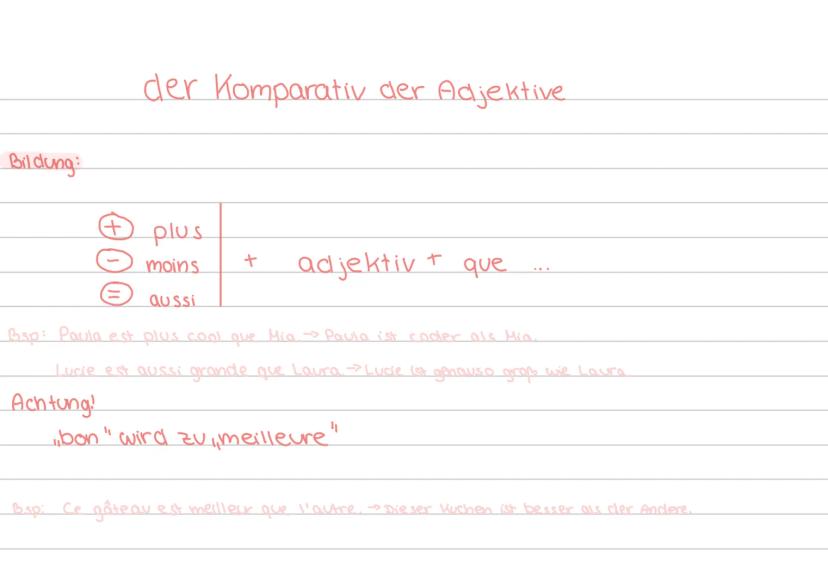 der Komparativ der Adjektive
Bildung:
+ plus
- moins + adjektiv + que ...
= aussi
Bsp: Paula est plus cool que Mia. → Paula ist cooler als Mia.
Lucie est aussi grande que Laura. → Lucie ist genauso groß wie Laura
Achtung!
„bon" wird zu „meilleure"
Bsp: Ce gâteau est meilleur que l'autre. → Dieser Kuchen ist besser als der Andere.